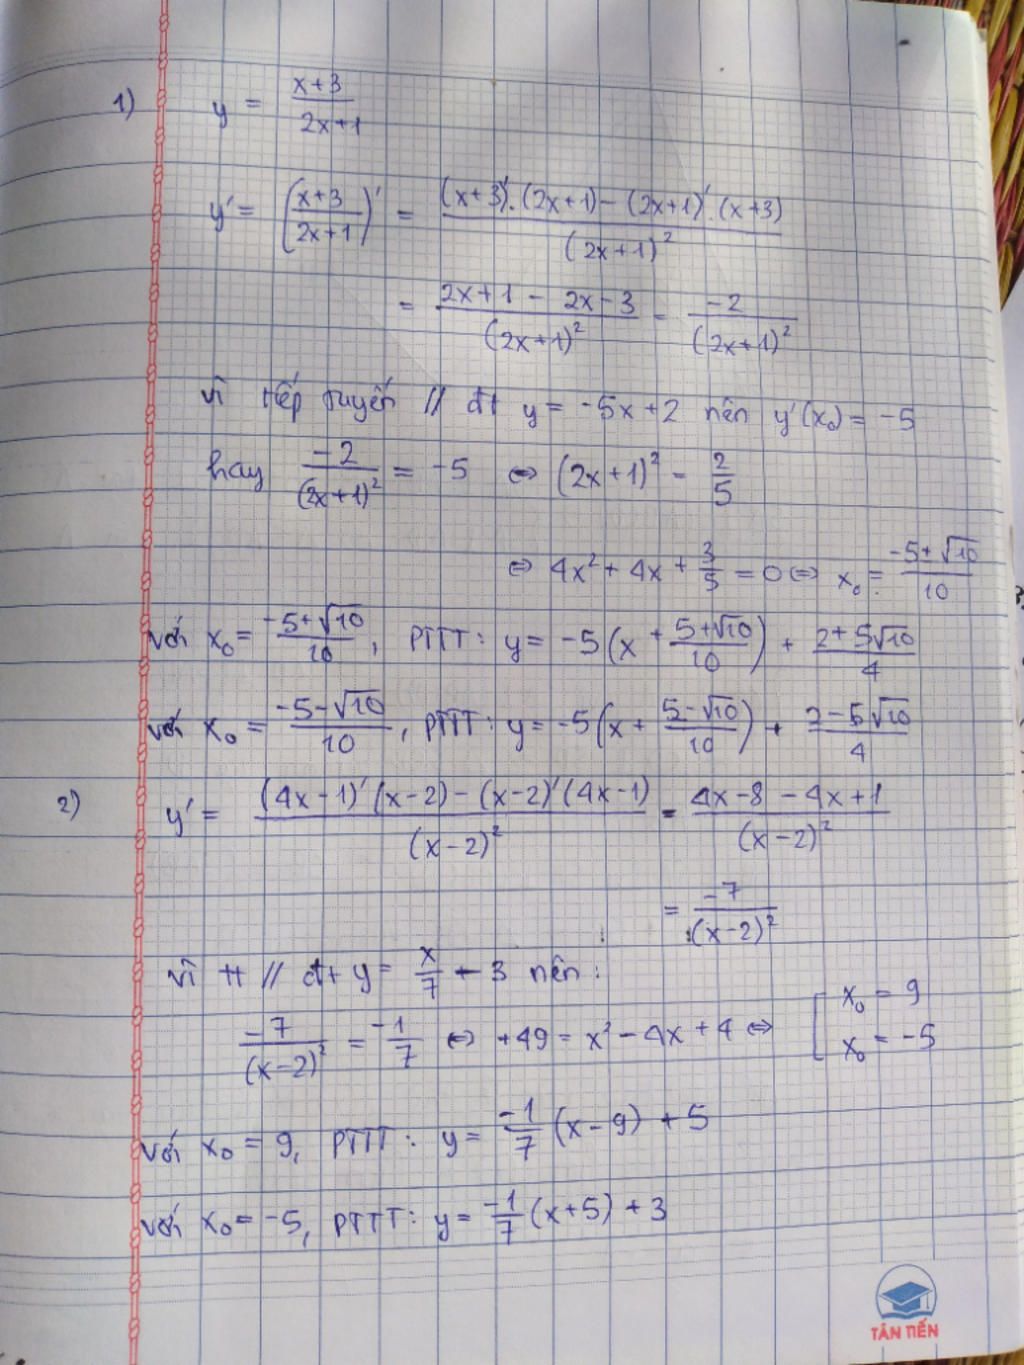 1) y = \frac{x+3}{2x+1}
y' = \left(\frac{x+3}{2x+1}\right)' = \frac{(x+3)'.(2x+1)-(2x+1)'.(x+3)}{(2x+1)^2}
= \frac{2x+1-2x-3}{(2x+1)^2} = \frac{-2}{(2x+1)^2}
vì tiếp tuyến // đt y = -5x+2 nên y'(x_0) = -5
hay \frac{-2}{(2x+1)^2} = -5 ⇔ (2x+1)^2 = \frac{2}{5}
⇔ 4x^2 + 4x + \frac{3}{5} = 0 ⇔ x_0 = \frac{-5±\sqrt{10}}{10}
với x_0 = \frac{-5+\sqrt{10}}{10}, PTTT: y = -5\left(x + \frac{5+\sqrt{10}}{10}\right) + \frac{2+5\sqrt{10}}{4}
với x_0 = \frac{-5-\sqrt{10}}{10}, PTTT: y = -5\left(x + \frac{5-\sqrt{10}}{10}\right) + \frac{2-5\sqrt{10}}{4}
2) y' = \frac{(4x-1)'(x-2)-(x-2)'(4x-1)}{(x-2)^2} = \frac{4x-8-4x+1}{(x-2)^2}
= \frac{-7}{(x-2)^2}
vì tt // đt y = \frac{x}{7} + 3 nên:
\frac{-7}{(x-2)^2} = \frac{-1}{7} ⇔ +49 = x^2 - 4x + 4 ⇔ [ x_0 = 9
x_0 = -5
với x_0 = 9, PTTT: y = \frac{-1}{7}(x-9) + 5
với x_0 = -5, PTTT: y = \frac{-1}{7}(x+5) + 3
TÂN TIẾN